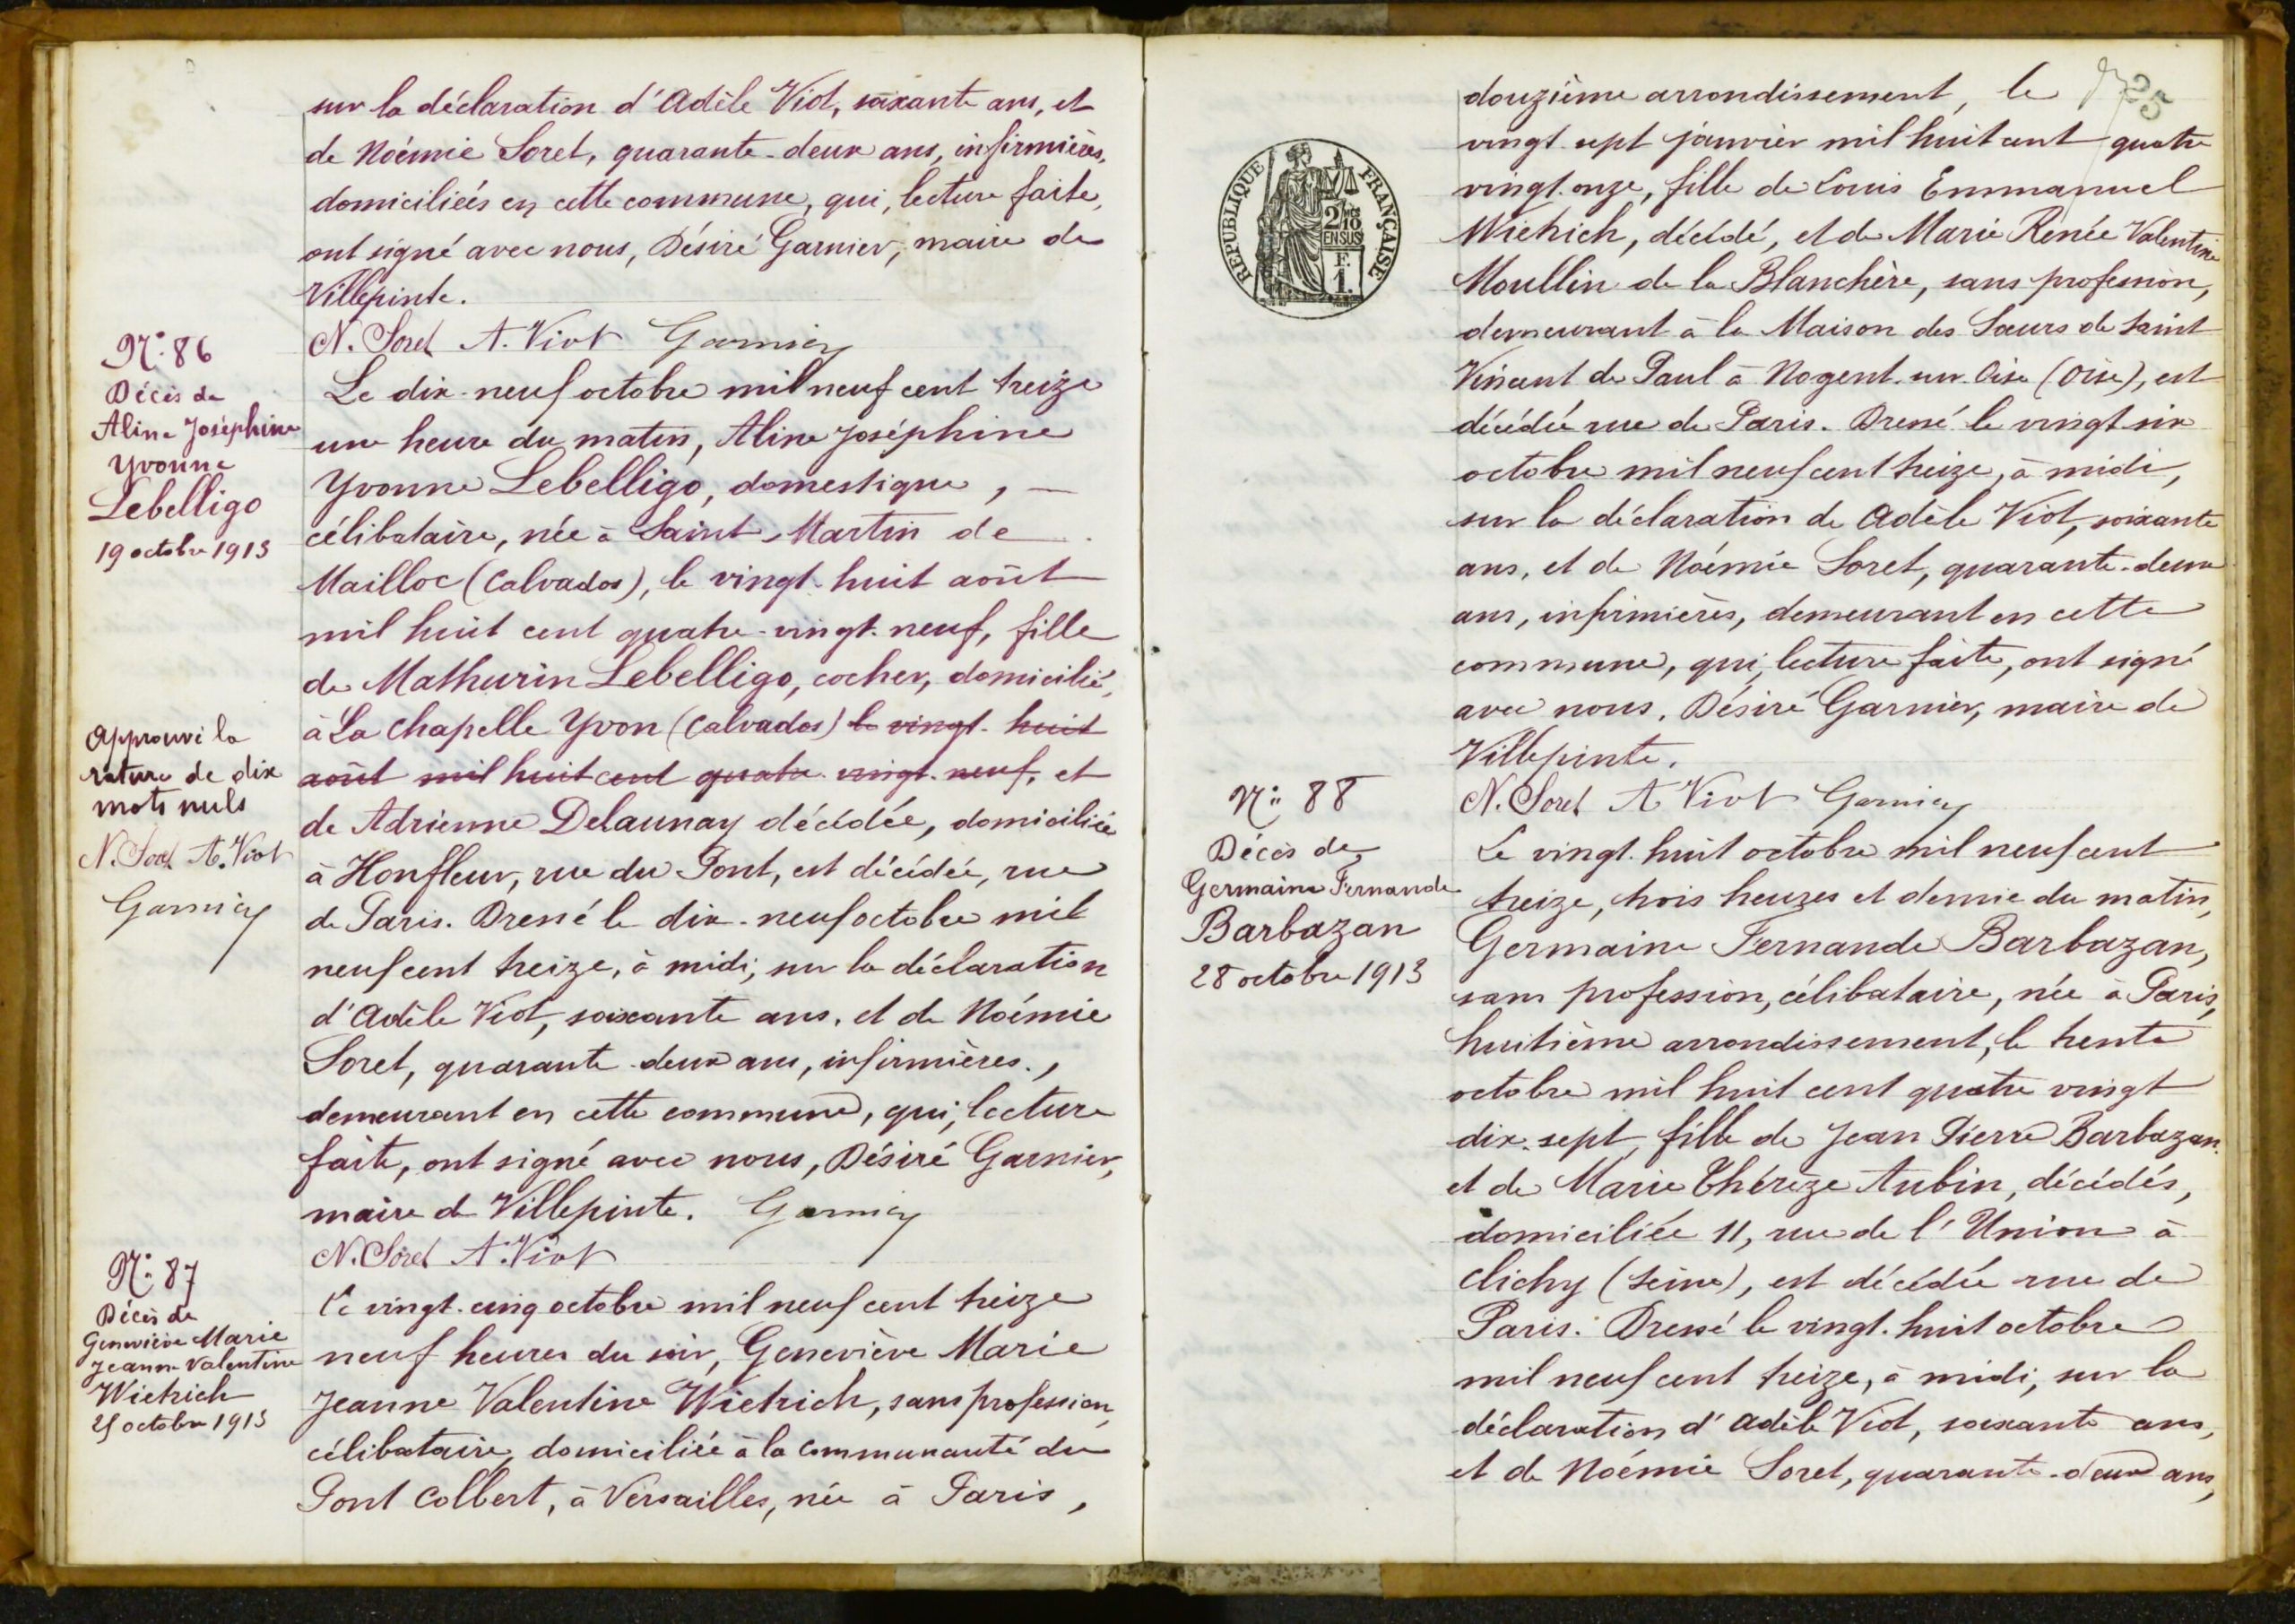 sur la déclaration d'Adèle Viot, soixante ans, et
de Noémie Soret, quarante-deux ans, infirmières,
domiciliées en cette commune, qui, lecture faite,
ont signé avec nous, Désiré Garnier, maire de
Villepinte.
N. Soret A. Viot Garnier
N° 86
Décès de
Aline Joséphine
Yvonne
Lebelligo
19 octobre 1913
Le dix-neuf octobre mil neuf cent treize
une heure du matin, Aline Joséphine
Yvonne Lebelligo, domestique, —
célibataire, née à Saint-Martin de
Mailloc (Calvados), le vingt-huit août
mil huit cent quatre-vingt-neuf, fille
de Mathurin Lebelligo, cocher, domicilié,
à La Chapelle Yvon (Calvados) le vingt-huit
août mil huit cent quatre-vingt-neuf, et
de Adrienne Delaunay décédée, domiciliée
à Honfleur, rue du Pont, est décédée, rue
de Paris. Dressé le dix-neuf octobre mil
neuf cent treize, à midi, sur la déclaration
d'Adèle Viot, soixante ans, et de Noémie
Soret, quarante-deux ans, infirmières,
demeurant en cette commune, qui, lecture
faite, ont signé avec nous, Désiré Garnier,
maire de Villepinte. Garnier
N. Soret A. Viot
Approuvé la
rature de dix
mots nuls
N. Soret A. Viot
Garnier
N° 87
Décès de
Geneviève Marie
Jeanne Valentine
Wietrich
25 octobre 1913
Le vingt-cinq octobre mil neuf cent treize
neuf heures du soir, Geneviève Marie
Jeanne Valentine Wietrich, sans profession,
célibataire, domiciliée à la Communauté du
Pont Colbert, à Versailles, née à Paris,
25
RÉPUBLIQUE FRANÇAISE
2/10
EN SUS
F.
1.
douzième arrondissement, le
vingt-sept janvier mil huit cent quatre
vingt-onze, fille de Louis Emmanuel
Wietrich, décédé, et de Marie Renée Valentine
Moullin de la Blanchère, sans profession,
demeurant à la Maison des Sœurs de Saint
Vincent de Paul à Nogent-sur-Oise (Oise), est
décédée rue de Paris. Dressé le vingt-six
octobre mil neuf cent treize, à midi,
sur la déclaration de Adèle Viot, soixante
ans, et de Noémie Soret, quarante-deux
ans, infirmières, demeurant en cette
commune, qui, lecture faite, ont signé
avec nous, Désiré Garnier, maire de
Villepinte.
N. Soret A. Viot Garnier
N° 88
Décès de
Germaine Fernande
Barbazan
28 octobre 1913
Le vingt-huit octobre mil neuf cent
treize, trois heures et demie du matin,
Germaine Fernande Barbazan,
sans profession, célibataire, née à Paris,
huitième arrondissement, le trente
octobre mil huit cent quatre vingt
dix-sept, fille de Jean Pierre Barbazan
et de Marie Thérèze Aubin, décédés,
domiciliée 11, rue de l'Union à
Clichy (Seine), est décédée rue de
Paris. Dressé le vingt-huit octobre
mil neuf cent treize, à midi, sur la
déclaration d'Adèle Viot, soixante ans,
et de Noémie Soret, quarante-deux ans,